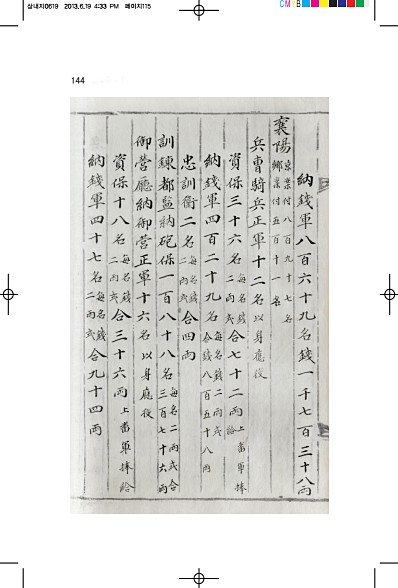 삼내지0619 2013.6.19 4:33 PM 페이지115
CMYB
144
納錢軍八百六十九名錢一千七百三十八兩
襄陽 京案付八百九十七名 鄕案付五百十一名
兵曹騎兵正軍十二名 以身應役
資保三十六名 每名錢二兩式 合七十二兩 上番軍捧給
納錢軍四百二十九名 每名錢二兩式 合錢八百五十八兩
忠訓衛二名 每名錢二兩式 合四兩
訓鍊都監納砲保一百八十八名 每名二兩式合三百七十六兩
御營廳納御營正軍十六名 以身應役
資保十八名 每名錢二兩式 合三十六兩 上番軍捧給
納錢軍四十七名 每名錢二兩式 合九十四兩